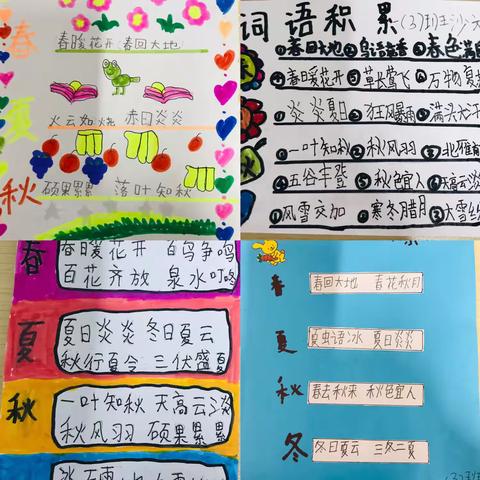 春
春暖花开 春回大地
夏
火云如烧 赤日炎炎
秋
硕果累累 落叶知秋
词语积累 (3)班王沙
①春回大地 ②鸟语花香 ③春色满
④春暖花开 ⑤草长莺飞 ⑥万物复
①炎炎夏日 ②狂风暴雨 ③满头大汗
①一叶知秋 ②秋风羽 ③北雁
④五谷丰登 ⑤秋色宜人 ⑥天高云淡
①风雪交加 ②寒冬腊月 ③大雪纷
春
春暖花开 百鸟争鸣
百花齐放 泉水叮咚
夏
夏日炎炎 冬日夏云
秋行夏令 三伏盛夏
秋
一叶知秋 天高云淡
秋风羽 硕果累累
春
春回大地 春花秋月
夏
夏虫语冰 夏日炎炎
秋
春去秋来 秋色宜人
冬
冬日夏云 三冬二夏
(3)班